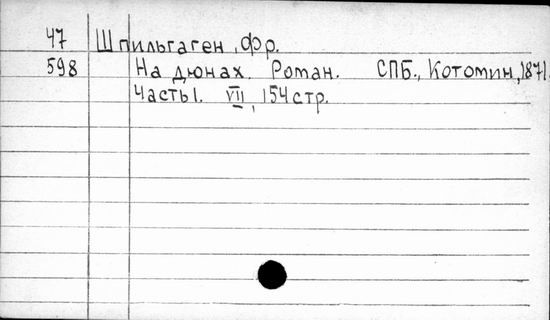 47 Шпильгаген, Фр.
598 На дюнах. Роман. СПБ., Котомин, 1871.
Часть I. VII, 154 стр.